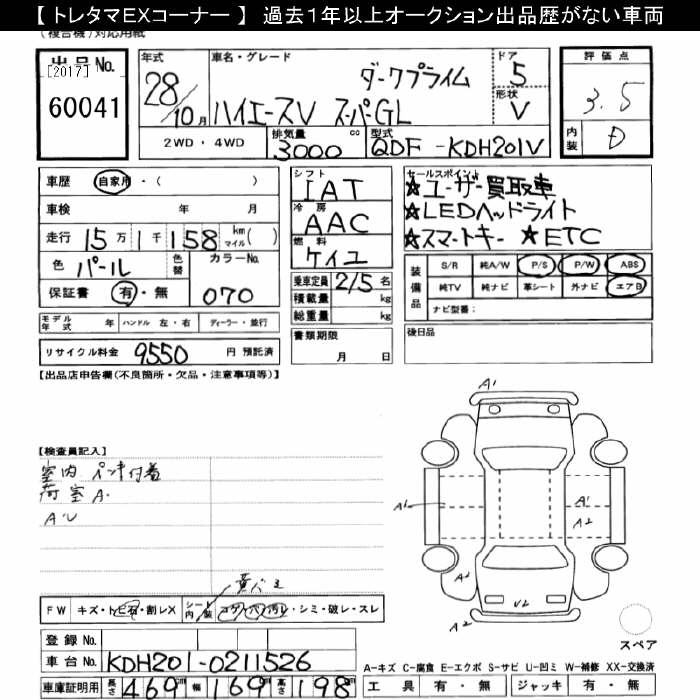 【 トレタマEXコーナー 】 過去1年以上オークション出品歴がない車両
(複合機)対応用紙
出品No. [2017] 60041
年式 28/10月
車名・グレード ダークプライム
ハイエースV スーパーGL
ドア 5
形状 V
評価点 3.5
内装 D
2WD・4WD 排気量 3000 cc 型式 QDF-KDH201V
車歴 自家用・( )
車検 年 月
走行 15万1千158 km マイル( )
色 パール 色替 カラーNo. 070
保証書 有・無
シフト IAT
冷房 AAC
燃料 ケイユ
乗車定員 2/5名
積載量 kg
総重量 kg
セールスポイント
★ユーザー買取車
★LEDヘッドライト
★スマートキー ★ETC
装備品 S/R 純A/W P/S P/W ABS
純TV 純ナビ 革シート 外ナビ エアB
ナビ型番:
モデル年式 年 ハンドル 左・右 ディーラー・並行
書類期限 月 日
後日品
リサイクル料金 9550 円 預託済
【出品店申告欄(不良箇所・欠品・注意事項等)】
【検査員記入】
室内 ペンキ付着
荷室 A.
A.U
A1
A1 A1
A2
A2
U2
A2
スペア
FW キズ・トビ石・割レX シート内装 コゲ・穴・汚レ・シミ・破レ・スレ
登録No.
車台No. KDH201-0211526
車庫証明用 長さ 469cm 幅 169cm 高さ 198cm
A-キズ C-腐食 E-エクボ S-サビ U-凹ミ W-補修 XX-交換済
工具 有・無 ジャッキ 有・無